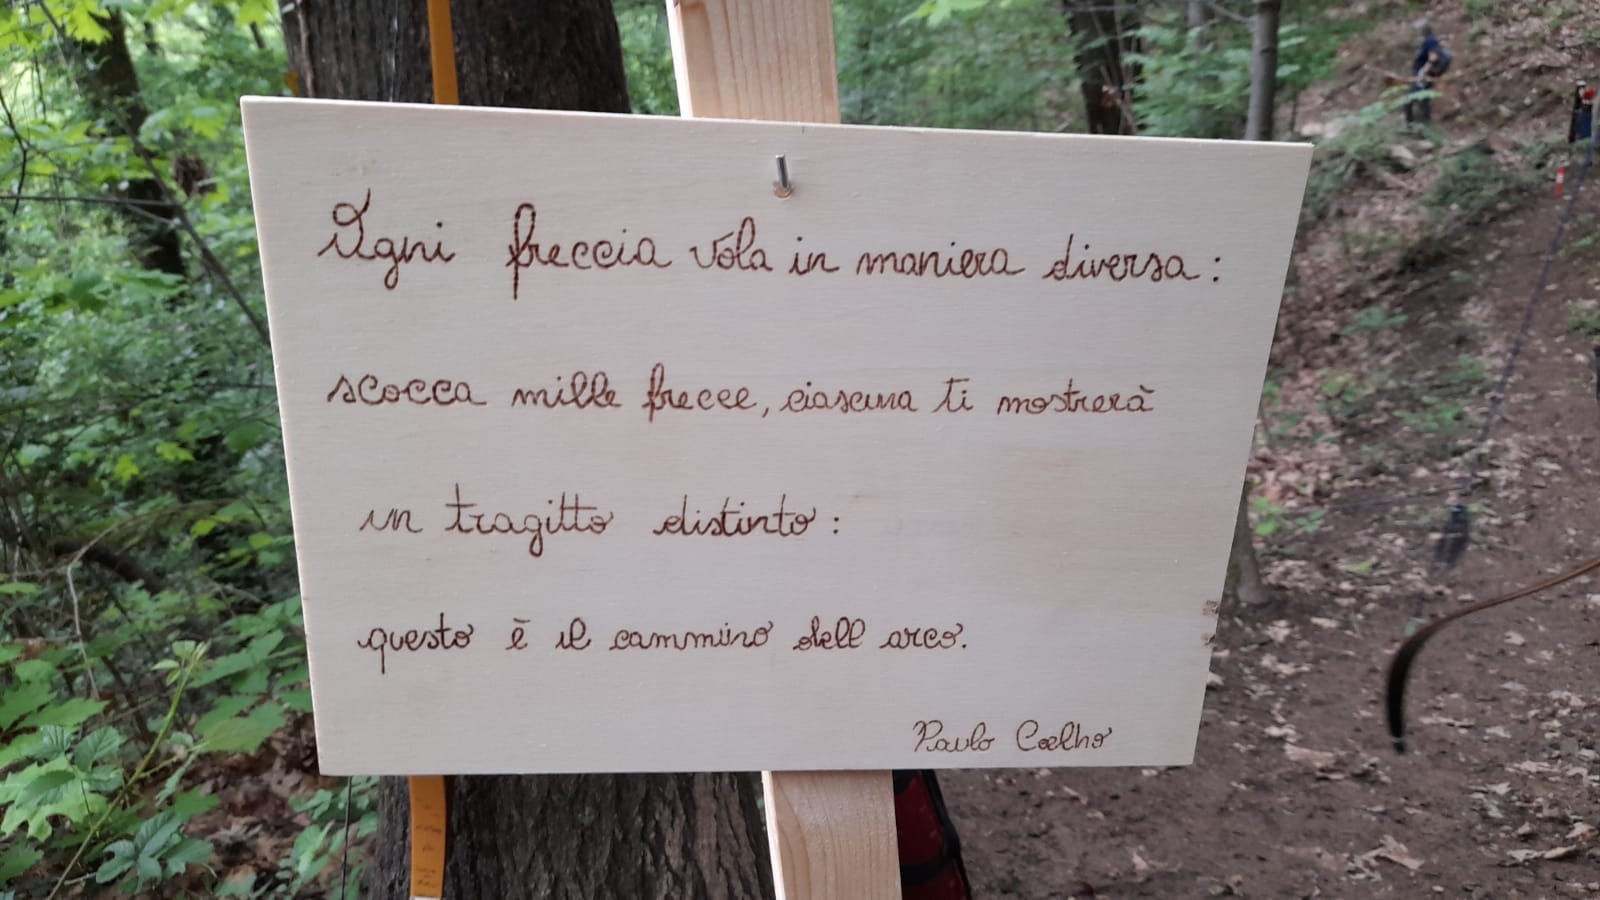 Ogni freccia vola in maniera diversa:
scocca mille frecce, ciascuna ti mostrerà
un tragitto distinto:
questo è il cammino dell arco.
Paulo Coelho